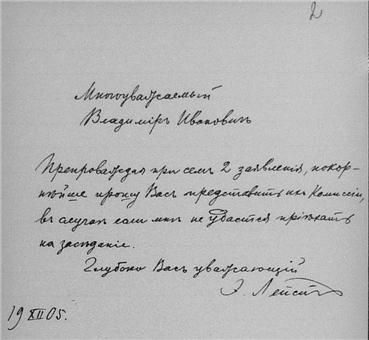 2
Многоуважаемый
Владиміръ Ивановичъ
Препровождая при семъ 2 заявленія, покор-
нѣйше прошу Васъ представить ихъ Комиссіи,
въ случаѣ если мнѣ не удастся пріѣхать
на засѣданіе.
Глубоко Васъ уважающій
Э. Лейстъ
19 XII 05.